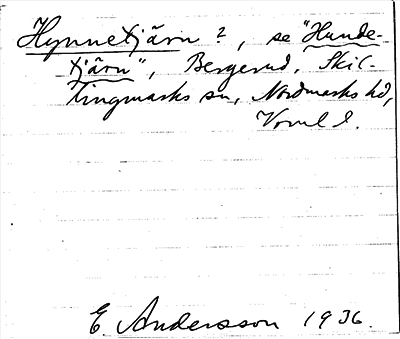 Hynnetjärn ?, se "Hunde-
tjärn", Bergerud, Skil-
lingmarks sn, Nordmarks hd,
Vrml l.
E. Andersson 1936.